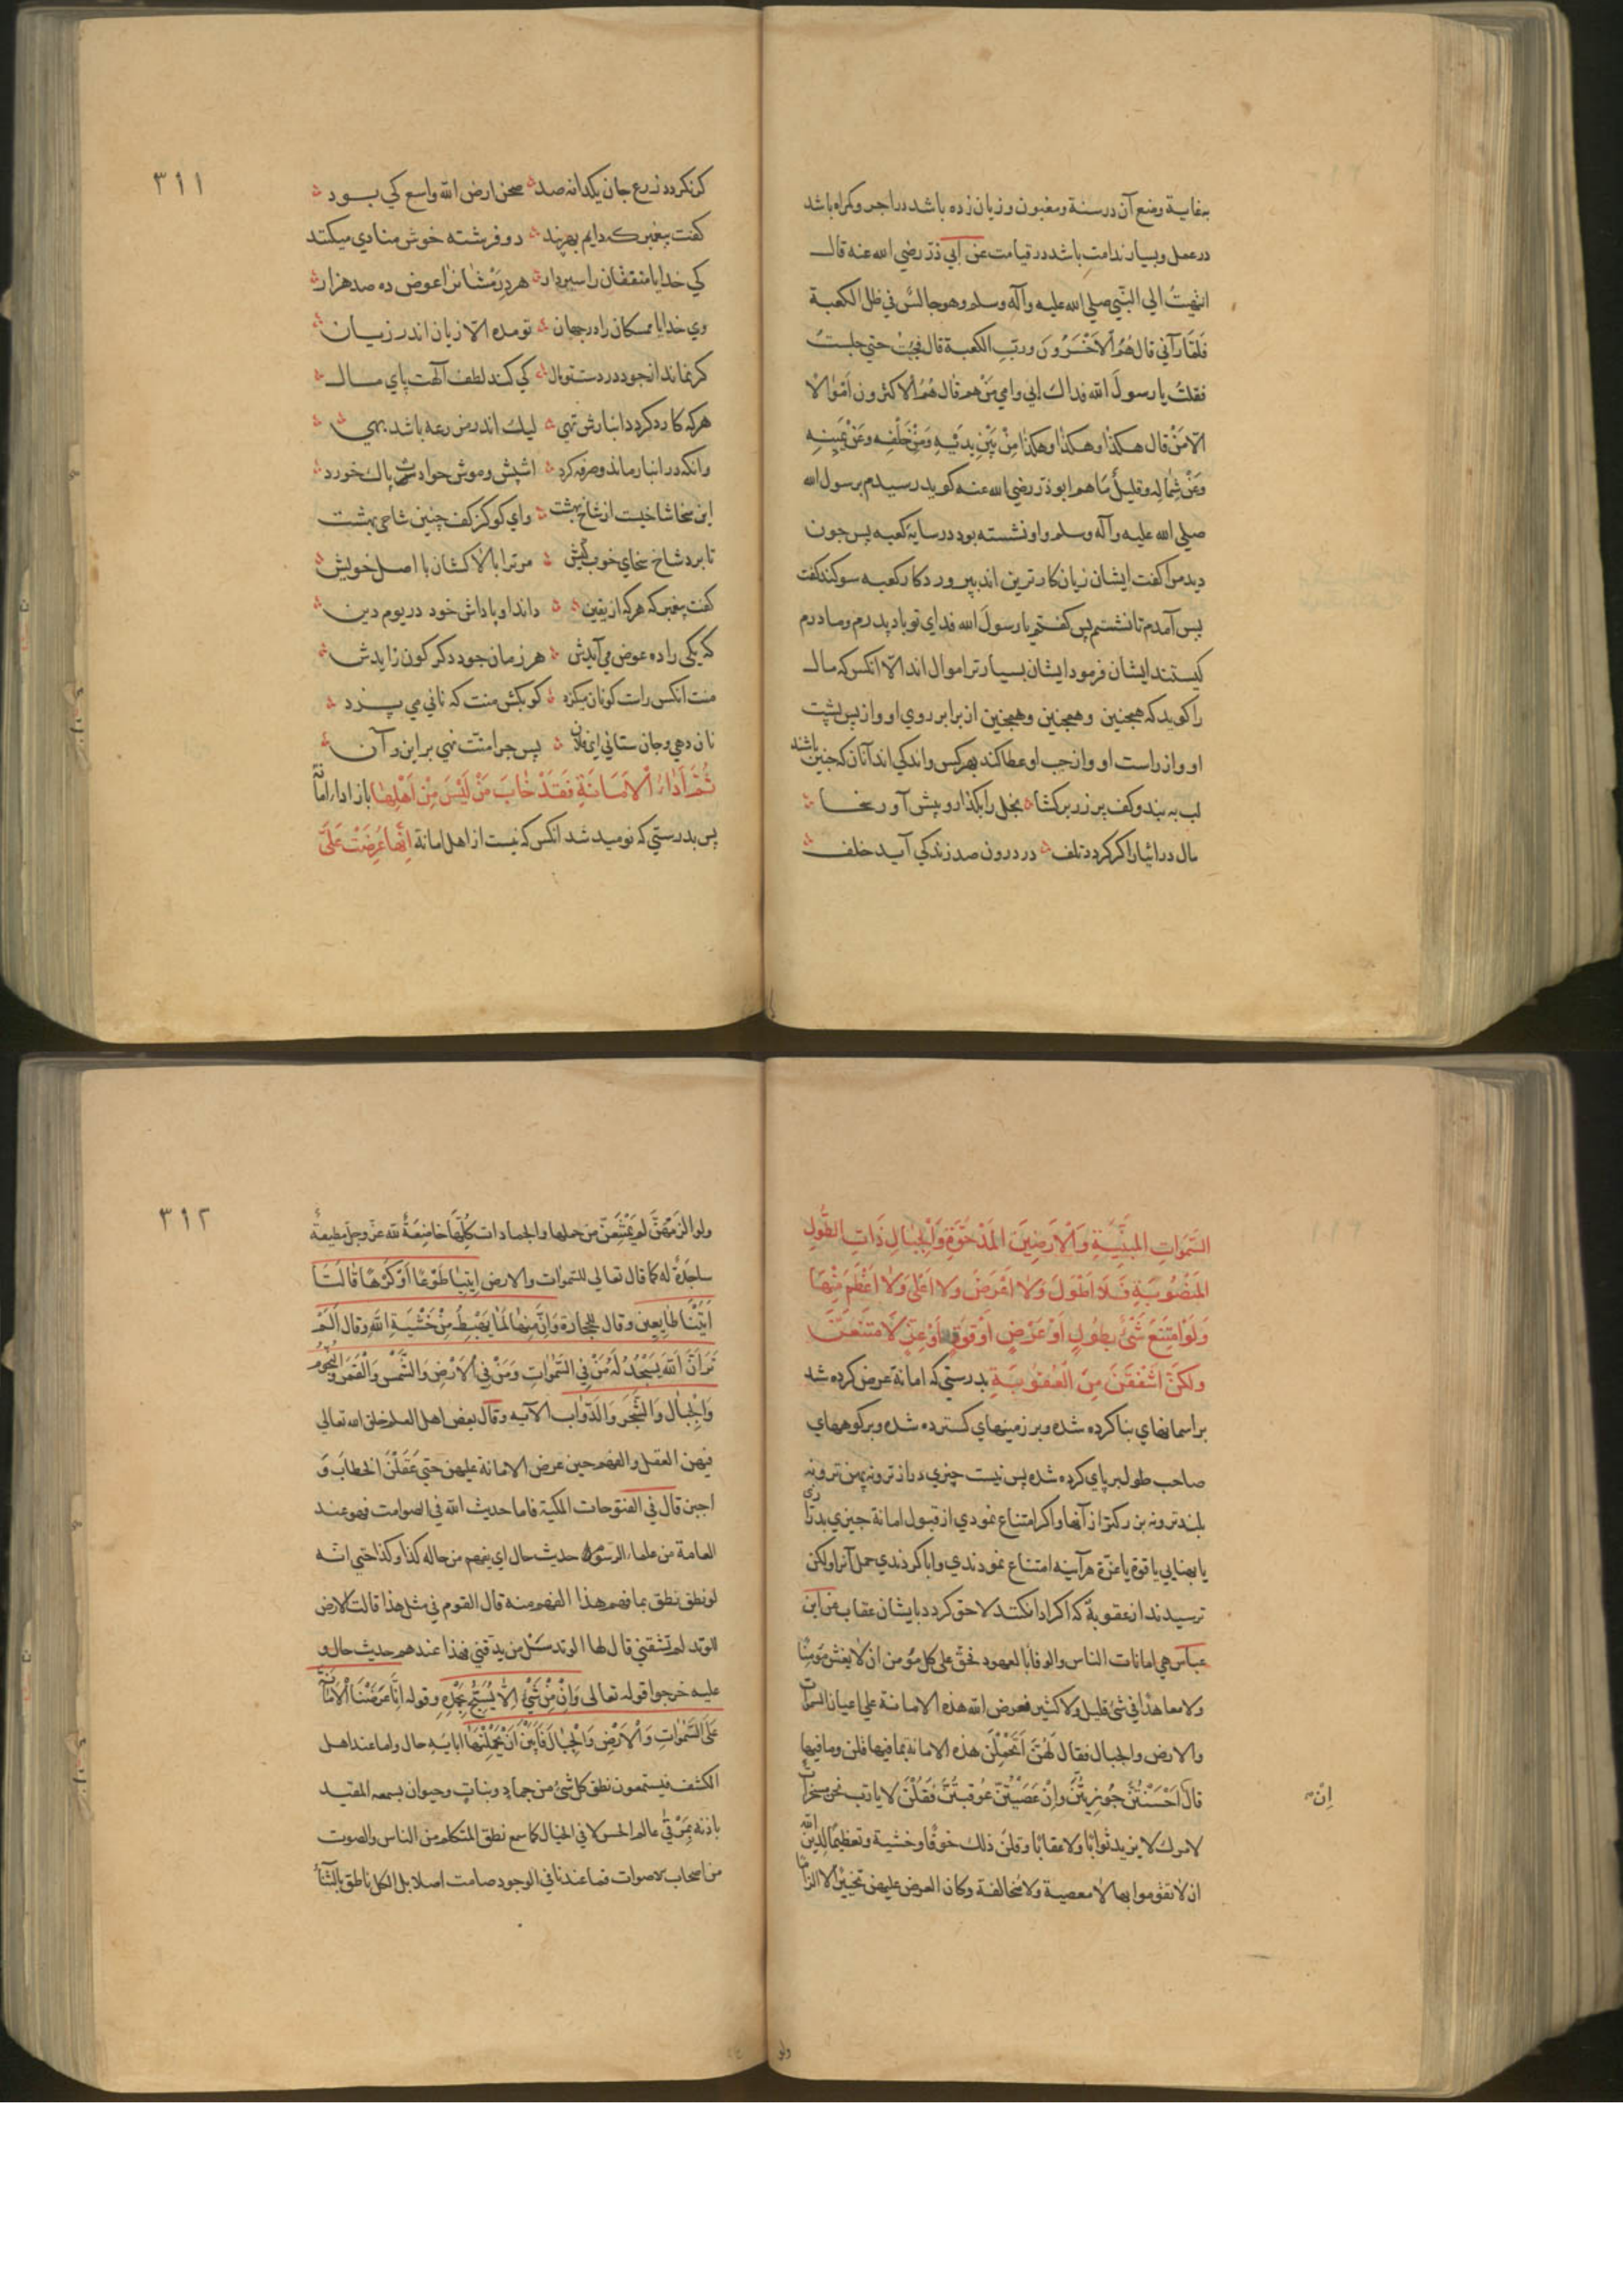 بغایة وضع آن در سنة ومغبون وزیان زده باشد در اجر وکمراه باشد
در عمل وبسیار ندامت باشد در قیامت عن ابي ذرّ رضي الله عنه قال
انتهیتُ الي النّبي صلي الله علیه وآله وسلم وهو جالسٌ في ظل الکعبة
فلمّا رآني قال هُمُ الْاَخْسَرُونَ وربِّ الکعبة قال فجئتُ حتي جلستُ
فقلتُ یا رسولَ الله فداك ابي وامي مَنْ هم قال هُمُ الْاکثرون اَمْوٰالاً
الّا مَنْ قال هٰکذا وهٰکذا وهٰکذا مِنْ بَیْنِ یدیْهِ ومِنْ خَلْفِه وعَنْ یَمِینِهِ
وعَنْ شِمٰالِه وقلیلٌ مٰاهم ابوذرّ رضي الله عنه کوید رسیدم برسول الله
صلي الله علیه وآله وسلم واو نشسته بود در سایۀ کعبه پس چون
دید مرا کفت ایشان زیان کارترین اند بپروردکار کعبه سوکند کفت
پس آمدم تا نشستم پس کفتم یا رسولَ الله فدای تو باد پدرم ومادرم
کیستند ایشان فرمود ایشان بسیارتر اموال اند الّا انکس که مال
را کوید که همچنین وهمچنین وهمچنین از برابر روي او واز پس پشت
او واز راست او واز چپ او عطا کند بهر کس واندکی اند آنان که چنین باشند
لب به بند وکف پر زر برکشا بخل را بکذار وپیش آور سخا
مال در ایثار اکر کردد تلف در درون صد زندکي آید خلف
۳۱۱
کر نکردد زرع جان یکدانه صد صحن ارض الله واسع کي بود
کفت پیغمبر که دایم بهر پند دو فرشته خوش منادي میکنند
کي خدایا منفقان را سیر دار هر درمشانرا عوض ده صد هزار
وي خدایا ممسکان را در جهان تو مده الّا زیان اندر زیان
کر نماند از جود در دست تو مال کي کند لطف آلهت پاي مال
هر که کارد کردد انبارش تهي لیك اندر مزرعه باشد بهي
وانکه در انبار ماند وصرفه کرد اشپش وموش حوادث پاك خورد
این سخا شاخیست از شاخ بهشت واي کو کز کف چنین شاخي بهشت
تا برد شاخ سخاي خوب کیش مر ترا بالاکشان با اصل خویش
کفت پیغمبر که هر که از یقین داند او پاداش خود در یوم دین
که یکی را ده عوض مي آیدش هر زمان جود دکر کون زایدش
منت انکس راست کو نان میکزد کو بکش منت که ناني مي پزد
نان دهي وجان ستاني اي فلان پس چرا منّت نهي بر این وآن
ثُمَّ اَدٰاءُ الْاَمٰانَةِ فَقَدْ خٰابَ مَنْ لَیْسَ مِنْ اَهْلِهٰا باز اداء امانة
پس بدرستي که نومید شد انکس که نیست از اهل امانة اِنَّهٰا عُرِضَتْ عَلَي
السَّمٰوٰاتِ المَبْنِیَّةِ وَالْاَرَضِینَ الْمَدْحُوَّةِ وَالْجِبٰالِ ذٰاتِ الطُّولِ
المَنْصُوبَةِ فَلاٰ اَطْوَلَ وَلاٰ اَعْرَضَ ولا اَعْليٰ وَلاٰ اَعْظَمَ مِنْهٰا
وَلَوْ امْتَنَعَ شَيْءٌ بِطُولٍ اَوْ عَرْضٍ اَوْ قُوَّةٍ اَوْ عِزٍّ لَامْتَنَعْنَ
ولکِنْ اَشْفَقْنَ مِنَ الْعُقُوبَةِ بدرستي که امانة عرض کرده شد
بر اسمانهاي بنا کرده شده وبر زمینهاي کسترده شده وبر کوههاي
صاحب طول برپاي کرده شده پس نیست چیزي درازتر ونه پهن تر ونه
بلندتر ونه بزرکتر از آنها واکر امتناع نمودي از قبول امانة چیزي بدرازی
یا پهنایي یا قوة یا عزّة هر آینه امتناع نمودندي وابا کردندي حمل آنرا ولکن
ترسیدند از عقوبة که اکر ادا نکنند لاحق کردد بایشان عقاب عن ابن
عباس هي امانات الناس والوفاء بالعهود فحقّ علي کل مؤمن ان لا یغش مؤمنًا
ولا معاهدًا في شئ قلیل ولا کثیر فعرض الله هذه الامانة علي اعیان السموات
والارض والجبال فقال لَهُنَّ اَتَحْمِلْنَ هذه الامانة بما فیها قلن وما فیها
قال اَحْسَنْتُنَّ جُوزِیتُنَّ وَاِنْ عَصَیْتُنَّ عُوقِبْتُنَّ فَقُلْنَ لا یا ربّ نحن مسخرات
اِنْ
لامرك لا نرید ثوابًا ولا عقابًا وقلنَ ذلك خوفًا وخشیة وتعظیمًا لدین الله
ان لا تقوموا بها لا معصیة ولا مخالفة وکان العرض علیهن تخییرًا لا الزامًا
ولو
۳۱۲
ولو الزَمَهُنَّ لم یَمْتَنِعْنَ من حملها والجمادات کلُّهٰا خٰاضِعَةٌ لله عزّ وجلّ مطیعةٌ
ساجدةٌ له کما قال تعالي للسّموات والارض اِیتِیٰا طَوْعًا اَوْ کَرْهًا قٰالَتٰا
اَتَیْنٰا طٰایِعِین وقال للحجارة وَاِنَّ مِنْهٰا لَمٰا یَهْبِطُ مِنْ خَشْیَةِ اللهِ وقال اَلَمْ
تَرَ اَنَّ اللهَ یَسْجُدُ لَهُ مَنْ فِي السَّمٰوٰاتِ وَمَنْ فِي الْاَرْضِ وَالشَّمْسُ وَالْقَمَرُ وَالنُّجُومُ
وَالْجِبٰالُ وَالشَّجَرُ وَالدَّوٰابُ الآیه وقال بعض اهل العلم خلق الله تعالي
فیهن العقل والفهم حین عرض الامانة علیهن حتي عَقَلْنَ الخطابَ وَ
اجبن قال في الفتوحات المکیة فاما حدیث الله في الصوامت فهو عند
العامة من علماء الرّسوم حدیث حال اي یفهم من حاله کذا وکذا حتي انّه
لو نطق نطق بما فهم هذا الفهم منه قال القوم في مثل هذا قالت الارض
للوتد لم تشقني قال لها الوتد سَلْ من یدقني فهذا عندهم حدیث حال و
علیه خرجوا قوله تعالی وَاِنْ مِنْ شَيْءٍ اِلّاٰ یُسَبِّحُ بِحَمْدِهِ وقوله اِنّٰا عَرَضْنَا الْاَمٰانَةَ
عَلَي السَّمٰوٰاتِ وَالْاَرْضِ وَالْجِبٰالِ فَاَبَیْنَ اَنْ یَحْمِلْنَهٰا ابایة حال واما عند اهل
الکشف فیستمعون نطق کل شئ من جماد ونبات وحیوان یسمعه المقید
باذنه في عالم الحس لا في الخیال کما سمع نطق المتکلم من الناس والصوت
من اصحاب الاصوات فما عندنا في الوجود صامت اصلا بل الکل ناطق بالثناء